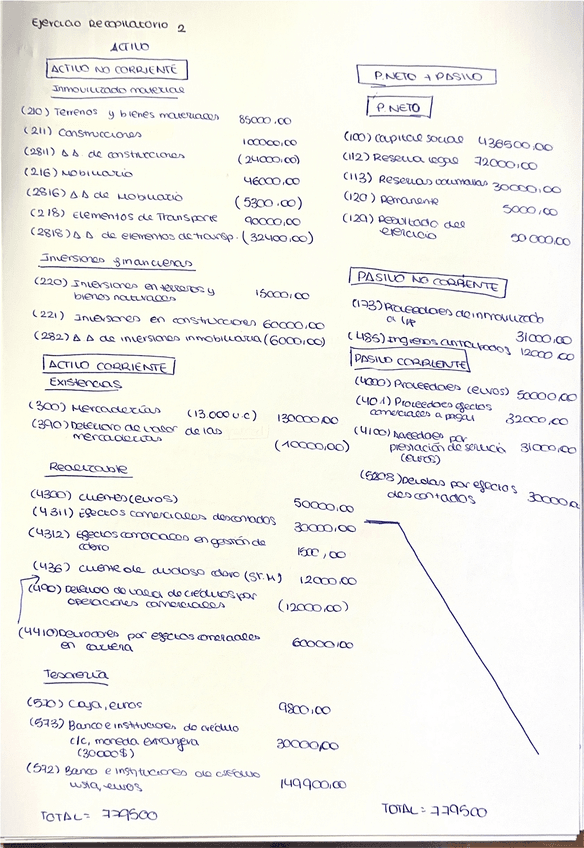 Ejercicio Recopilatorio 2
ACTIVO
ACTIVO NO CORRIENTE
Inmovilizado material
(210) Terrenos y bienes materiales 85000,00
(211) Construcciones 100000,00
(2811) ΔΔ de construcciones (24000,00)
(216) Mobiliario 46000,00
(2816) ΔΔ de Mobiliario (5300,00)
(218) Elementos de Transporte 90000,00
(2818) ΔΔ de elementos de transp. (32400,00)
Inversiones financieras
(220) Inversiones en terrenos y
bienes naturales 15000,00
(221) Inversiones en construcciones 60000,00
(282) ΔΔ de inversiones inmobiliaria (6000,00)
ACTIVO CORRIENTE
Existencias
(300) Mercaderías (13.000 u.c) 130000,00
(390) Deterioro de valor de las
mercaderías (10000,00)
Realizable
(4300) Clientes (euros) 50000,00
(4311) Efectos comerciales descontados 30000,00
(4312) Efectos comerciales en gestión de
cobro 1500,00
(436) Cliente de dudoso cobro (Sr. M) 12000,00
(490) Deterioro de valor de créditos por
operaciones comerciales (12000,00)
(4410) Deudores por efectos comerciales
en cartera 60000,00
Tesorería
(570) Caja, euros 9800,00
(573) Banco e instituciones de crédito
c/c, moneda extranjera 30000,00
(30000$)
(572) Banco e instituciones de crédito
vista, euros 149900,00
TOTAL = 779500
P.NETO + PASIVO
P.NETO
(100) Capital social 436500,00
(112) Reserva legal 72000,00
(113) Reservas voluntarias 30000,00
(120) Remanente 5000,00
(129) Resultado del
ejercicio 50000,00
PASIVO NO CORRIENTE
(173) Proveedores de inmovilizado
a l/p 31000,00
(485) Ingresos anticipados 12000,00
PASIVO CORRIENTE
(4000) Proveedores (euros) 50000,00
(401) Proveedores efectos
comerciales a pagar 32000,00
(4100) Acreedores por
prestación de servicio 31000,00
(euros)
(5208) Deudas por efectos
descontados 30000,00
TOTAL = 779500